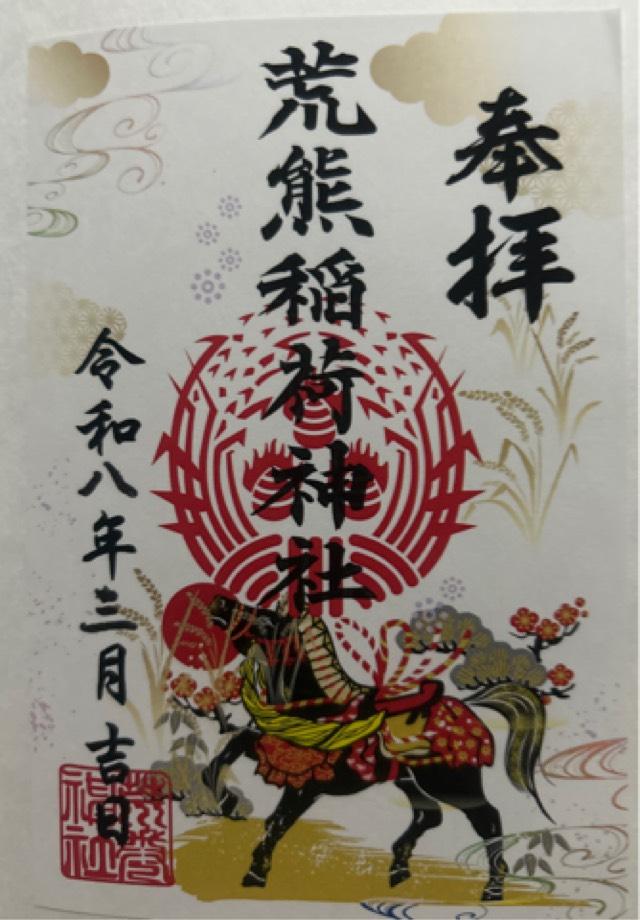 奉拝
荒熊稲荷神社
令和八年三月吉日